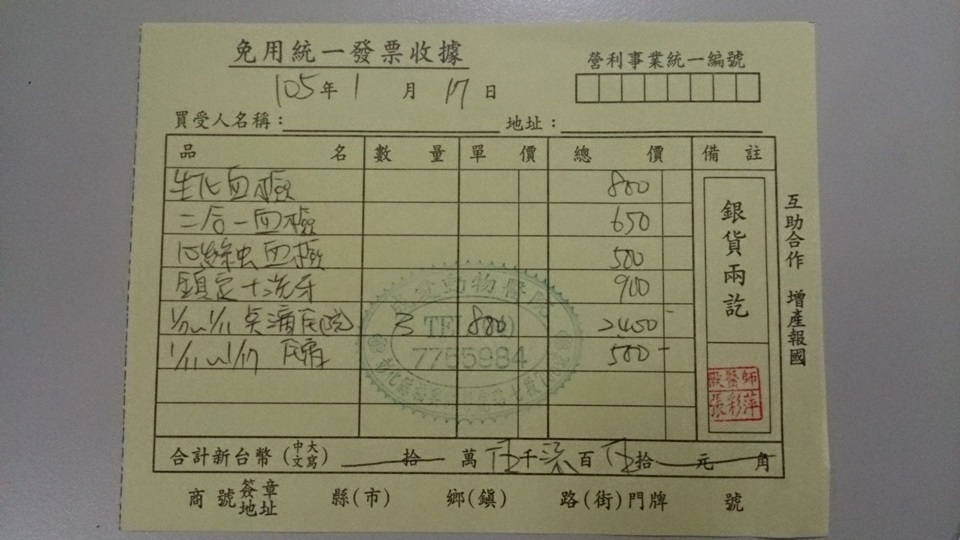 免用統一發票收據
營利事業統一編號
105年 1 月 17 日
買受人名稱： 地址：
品名 數量 單價 總價 備註
生化血檢 800
二合一血檢 650
心絲虫血檢 500
鎮定+洗牙 900
住院 3 800 2400-
1/11~1/17 500-
銀貨兩訖
互助合作 增產報國
動物醫院
TEL
7785984
獸醫師
張彩萍
合計新台幣(中文大寫) 拾 萬 伍千柒百伍拾 元 角
商號簽章地址 縣(市) 鄉(鎮) 路(街)門牌 號